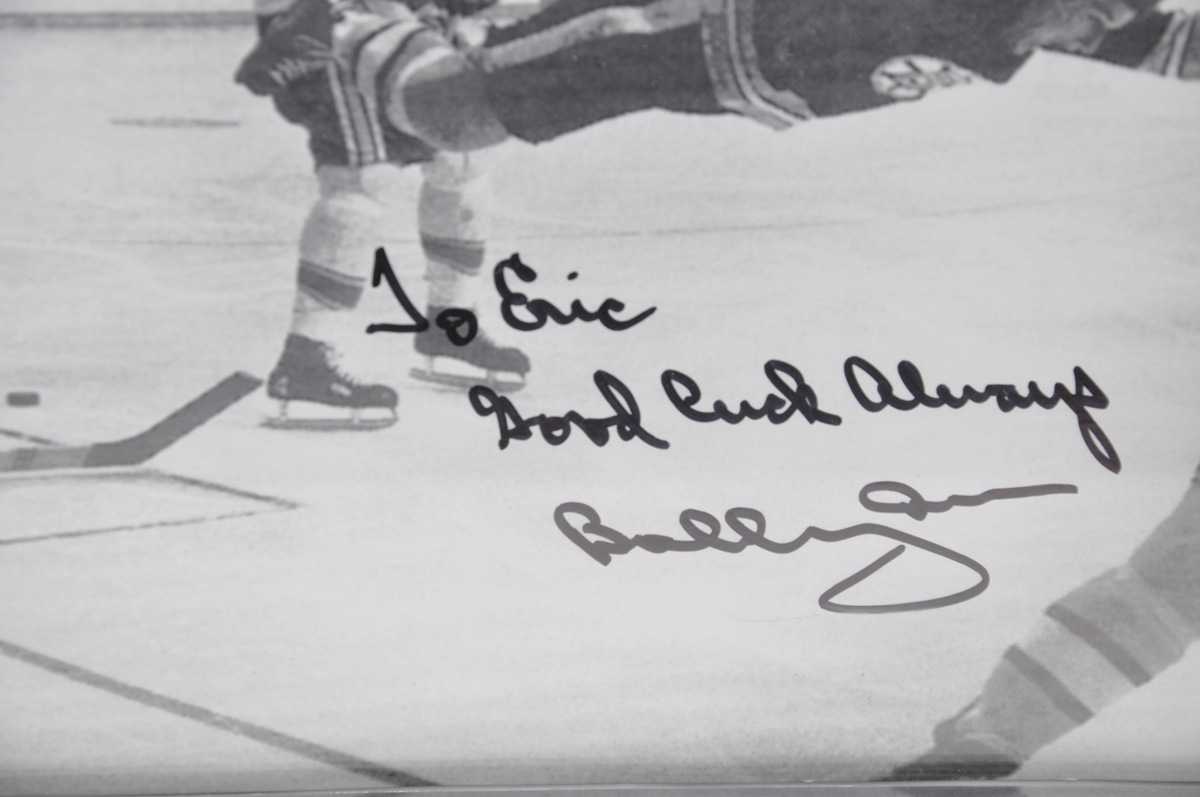 To Eric
Good luck Always
Bobby Orr